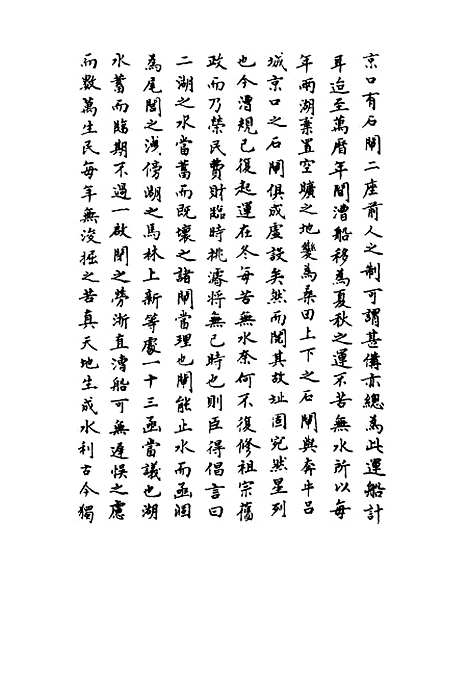 京口有石閘二座前人之制可謂甚備亦總為此運船計
耳迨至萬曆年間漕船移為夏秋之運不苦無水所以每
年兩湖棄置空曠之地變為桑田上下之石閘與奔牛吕
城京口之石閘俱成虛設矣然而閘其故址固宛然星列
也今漕規已復起運在冬每苦無水奈何不復修祖宗舊
政而乃榮民費財臨時挑濬將無已時也則臣得倡言曰
二湖之水當蓄而既壞之諸閘當理也閘能止水而函固
為尾閭之洩傍湖之馬林上新等處一十三函當議也湖
水蓄而臨期不過一啟閉之勞浙直漕船可無遲悞之慮
而數萬生民每年無浚掘之苦真天地生成水利古今獨